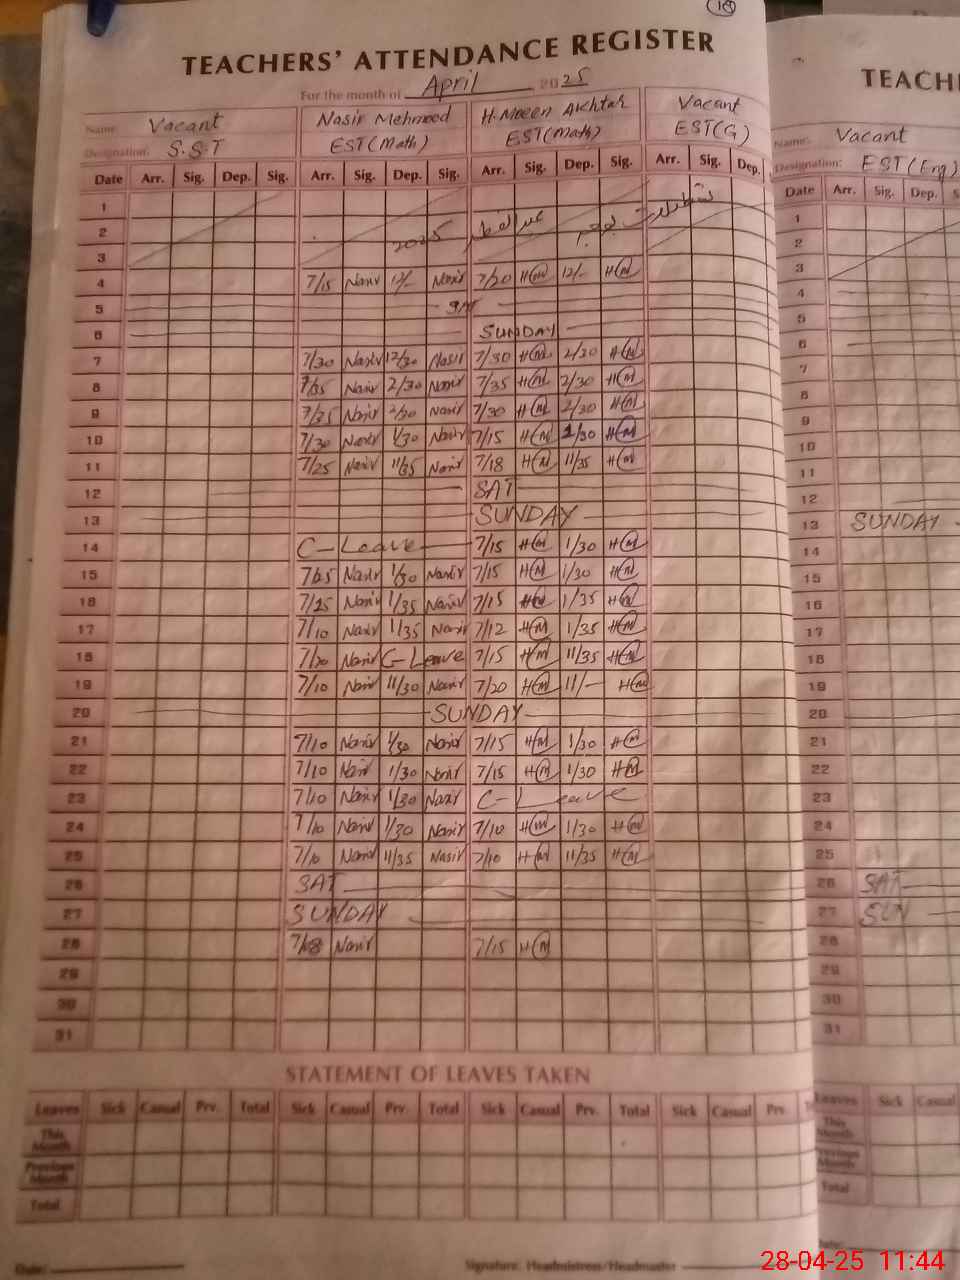 18
TEACHERS' ATTENDANCE REGISTER
For the month of April 2025
Name: Vacant Nasir Mehmood H-Mbeen Akhtar Vacant
Designation: S.S.T EST(Math) EST(Math) EST(G)
Date Arr. Sig. Dep. Sig. Arr. Sig. Dep. Sig. Arr. Sig. Dep. Sig. Arr. Sig. Dep.
1
2 2025 عید الفطر تعطیلات
3
4 7/15 Nasir 12/- Nasir 7/20 HM 12/- HM
5 SAT
6 SUNDAY
7 7/30 Nasir 12/30 Nasir 7/30 HM 2/30 HM
8 7/35 Nasir 2/30 Nasir 7/35 HM 2/30 HM
9 7/25 Nasir 2/30 Nasir 7/30 HM 2/30 HM
10 7/30 Nasir 1/30 Nasir 7/15 HM 1/30 HM
11 7/25 Nasir 11/35 Nasir 7/18 HM 11/35 HM
12 SAT
13 SUNDAY
14 C-Leave 7/15 HM 1/30 HM
15 7/25 Nasir 1/30 Nasir 7/15 HM 1/30 HM
16 7/25 Nasir 1/35 Nasir 7/15 HM 1/35 HM
17 7/10 Nasir 1/35 Nasir 7/12 HM 1/35 HM
18 7/20 Nasir C-Leave 7/15 HM 11/35 HM
19 7/10 Nasir 11/30 Nasir 7/20 HM 11/- HM
20 SUNDAY
21 7/10 Nasir 1/30 Nasir 7/15 HM 1/30 HM
22 7/10 Nasir 1/30 Nasir 7/15 HM 1/30 HM
23 7/10 Nasir 1/30 Nasir C-Leave
24 7/10 Nasir 1/30 Nasir 7/10 HM 1/30 HM
25 7/10 Nasir 11/35 Nasir 7/10 HM 11/35 HM
26 SAT
27 SUNDAY
28 7/08 Nasir 7/15 HM
29
30
31
STATEMENT OF LEAVES TAKEN
Leaves Sick Casual Prv. Total Sick Casual Prv. Total Sick Casual Prv. Total Sick Casual Prv.
This Month
Previous Month
Total
Date: Signature: Headmistress/Headmaster
TEACH
Name: Vacant
Designation: EST(Eng)
Date Arr. Sig. Dep. S
1
2
3
4
5
6
7
8
9
10
11
12
13 SUNDAY
14
15
16
17
18
19
20
21
22
23
24
25
26 SAT
27 SUN
28
29
30
31
Leaves Sick Casual
This Month
Previous Month
Total
Date:
28-04-25 11:44